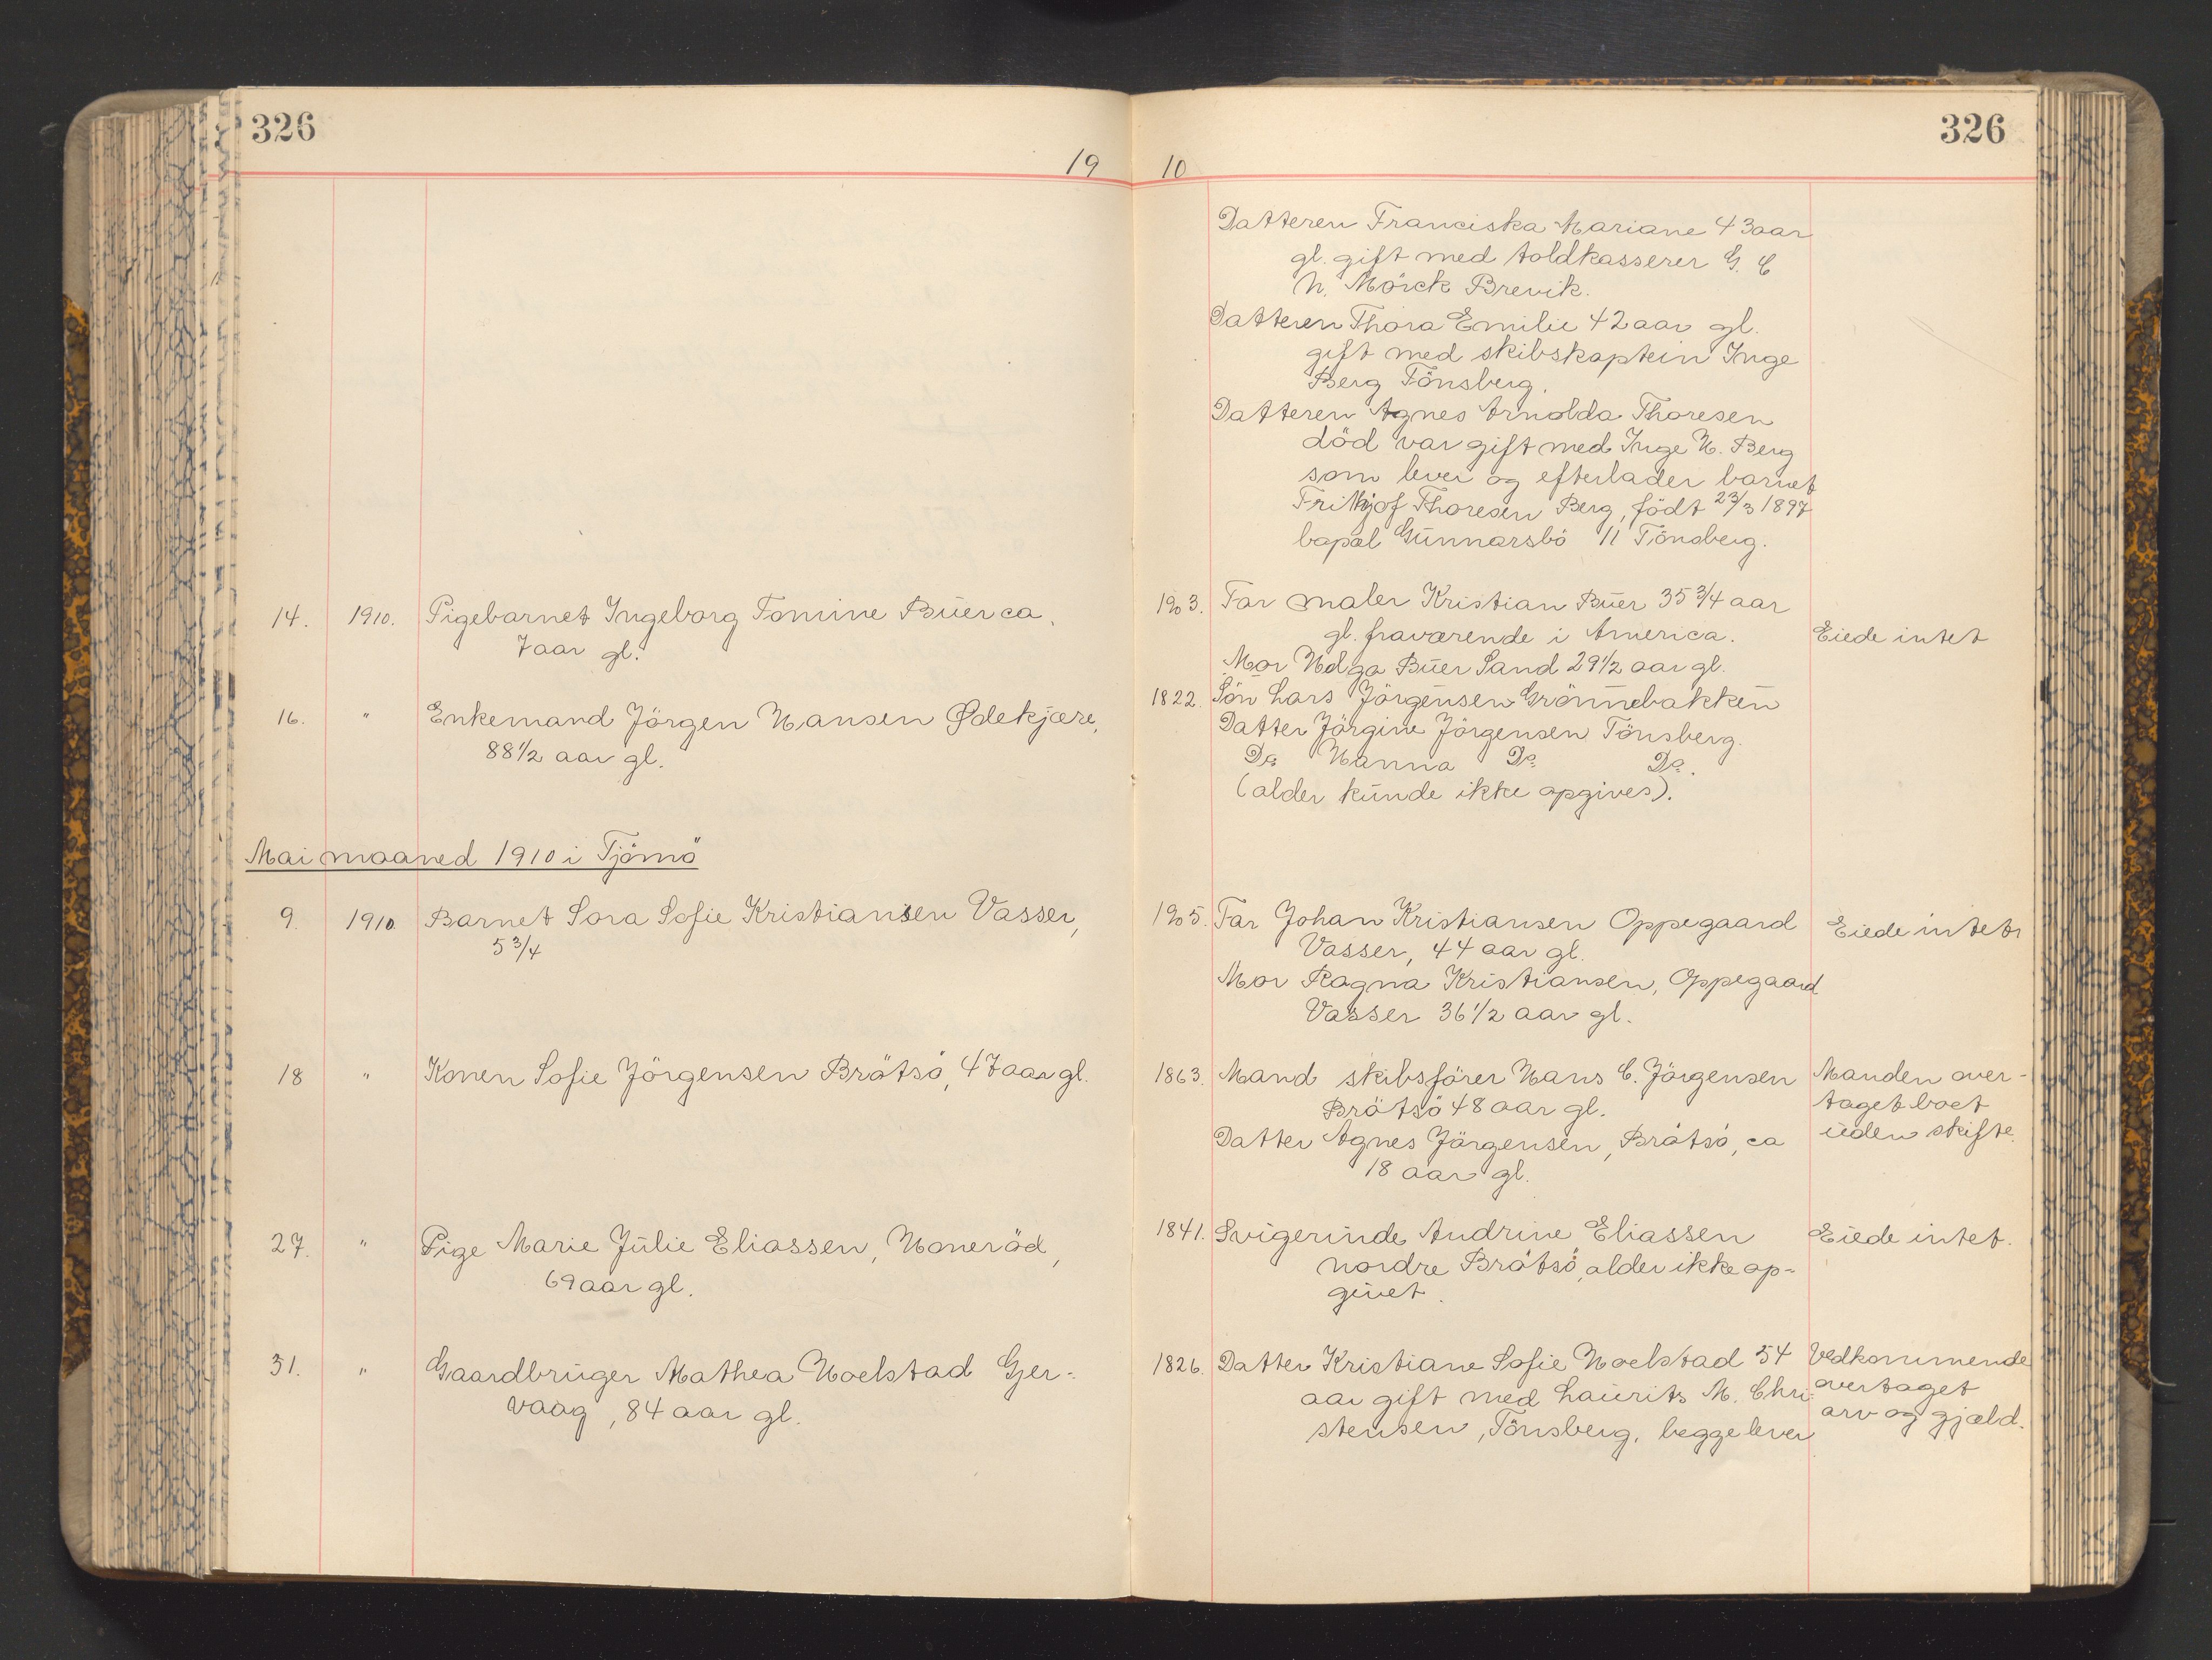 326
326
19 10
Datteren Franciska Mariane 43 aar
gl. gift med toldkasserer G. C
N. Mörck Brevik.
Datteren Thora Emilie 42 aar gl.
gift med skibskaptein Inge
Berg Tönsberg.
Datteren Agnes Arnolda Thoresen
död var gift med Inge H. Berg
som lever og efterlader barnet
Frithjof Thoresen Berg, födt 23/3 1897
bopæl Gunnarsbö 11 Tönsberg.
14. 1910. Pigebarnet Ingeborg Tomine Buer ca.
7 aar gl.
1903. Far maler Kristian Buer 35 3/4 aar
gl. fraværende i America.
Mor Helga Buer Sand 29 1/2 aar gl.
Eiede intet
16. " Enkemand Jörgen Hansen Ødekjære,
88 1/2 aar gl.
1822. Sön Lars Jörgensen Grönnebakken
Datter Jörgine Jörgensen Tönsberg.
Do Hanna Do Do.
(alder kunde ikke opgives).
Mai maaned 1910 i Tjömö
9. 1910. Barnet Sora Sofie Kristiansen Vasser,
5 3/4
1905. Far Johan Kristiansen Oppegaard
Vasser, 44 aar gl.
Mor Ragna Kristiansen, Oppegaard
Vasser 36 1/2 aar gl.
Eiede intet
18 " Konen Sofie Jörgensen Brötsö, 47 aar gl.
1863. Mand skibsförer Hans C. Jörgensen
Brötsö 48 aar gl.
Datter Agnes Jörgensen, Brötsö, ca
18 aar gl.
Manden over-
taget boet
uden skifte.
27. " Pige Marie Julie Eliassen, Honeröd,
69 aar gl.
1841. Svigerinde Andrine Eliassen
nordre Brötsö, alder ikke op-
givet.
Eiede intet.
31. " Gaardbruger Mathea Hoelstad Gjer-
vaag, 84 aar gl.
1826. Datter Kristiane Sofie Hoelstad 54
aar gift med Laurits M. Chri-
stensen, Tönsberg, begge lever
Vedkommende
overtaget
arv og gjæld.